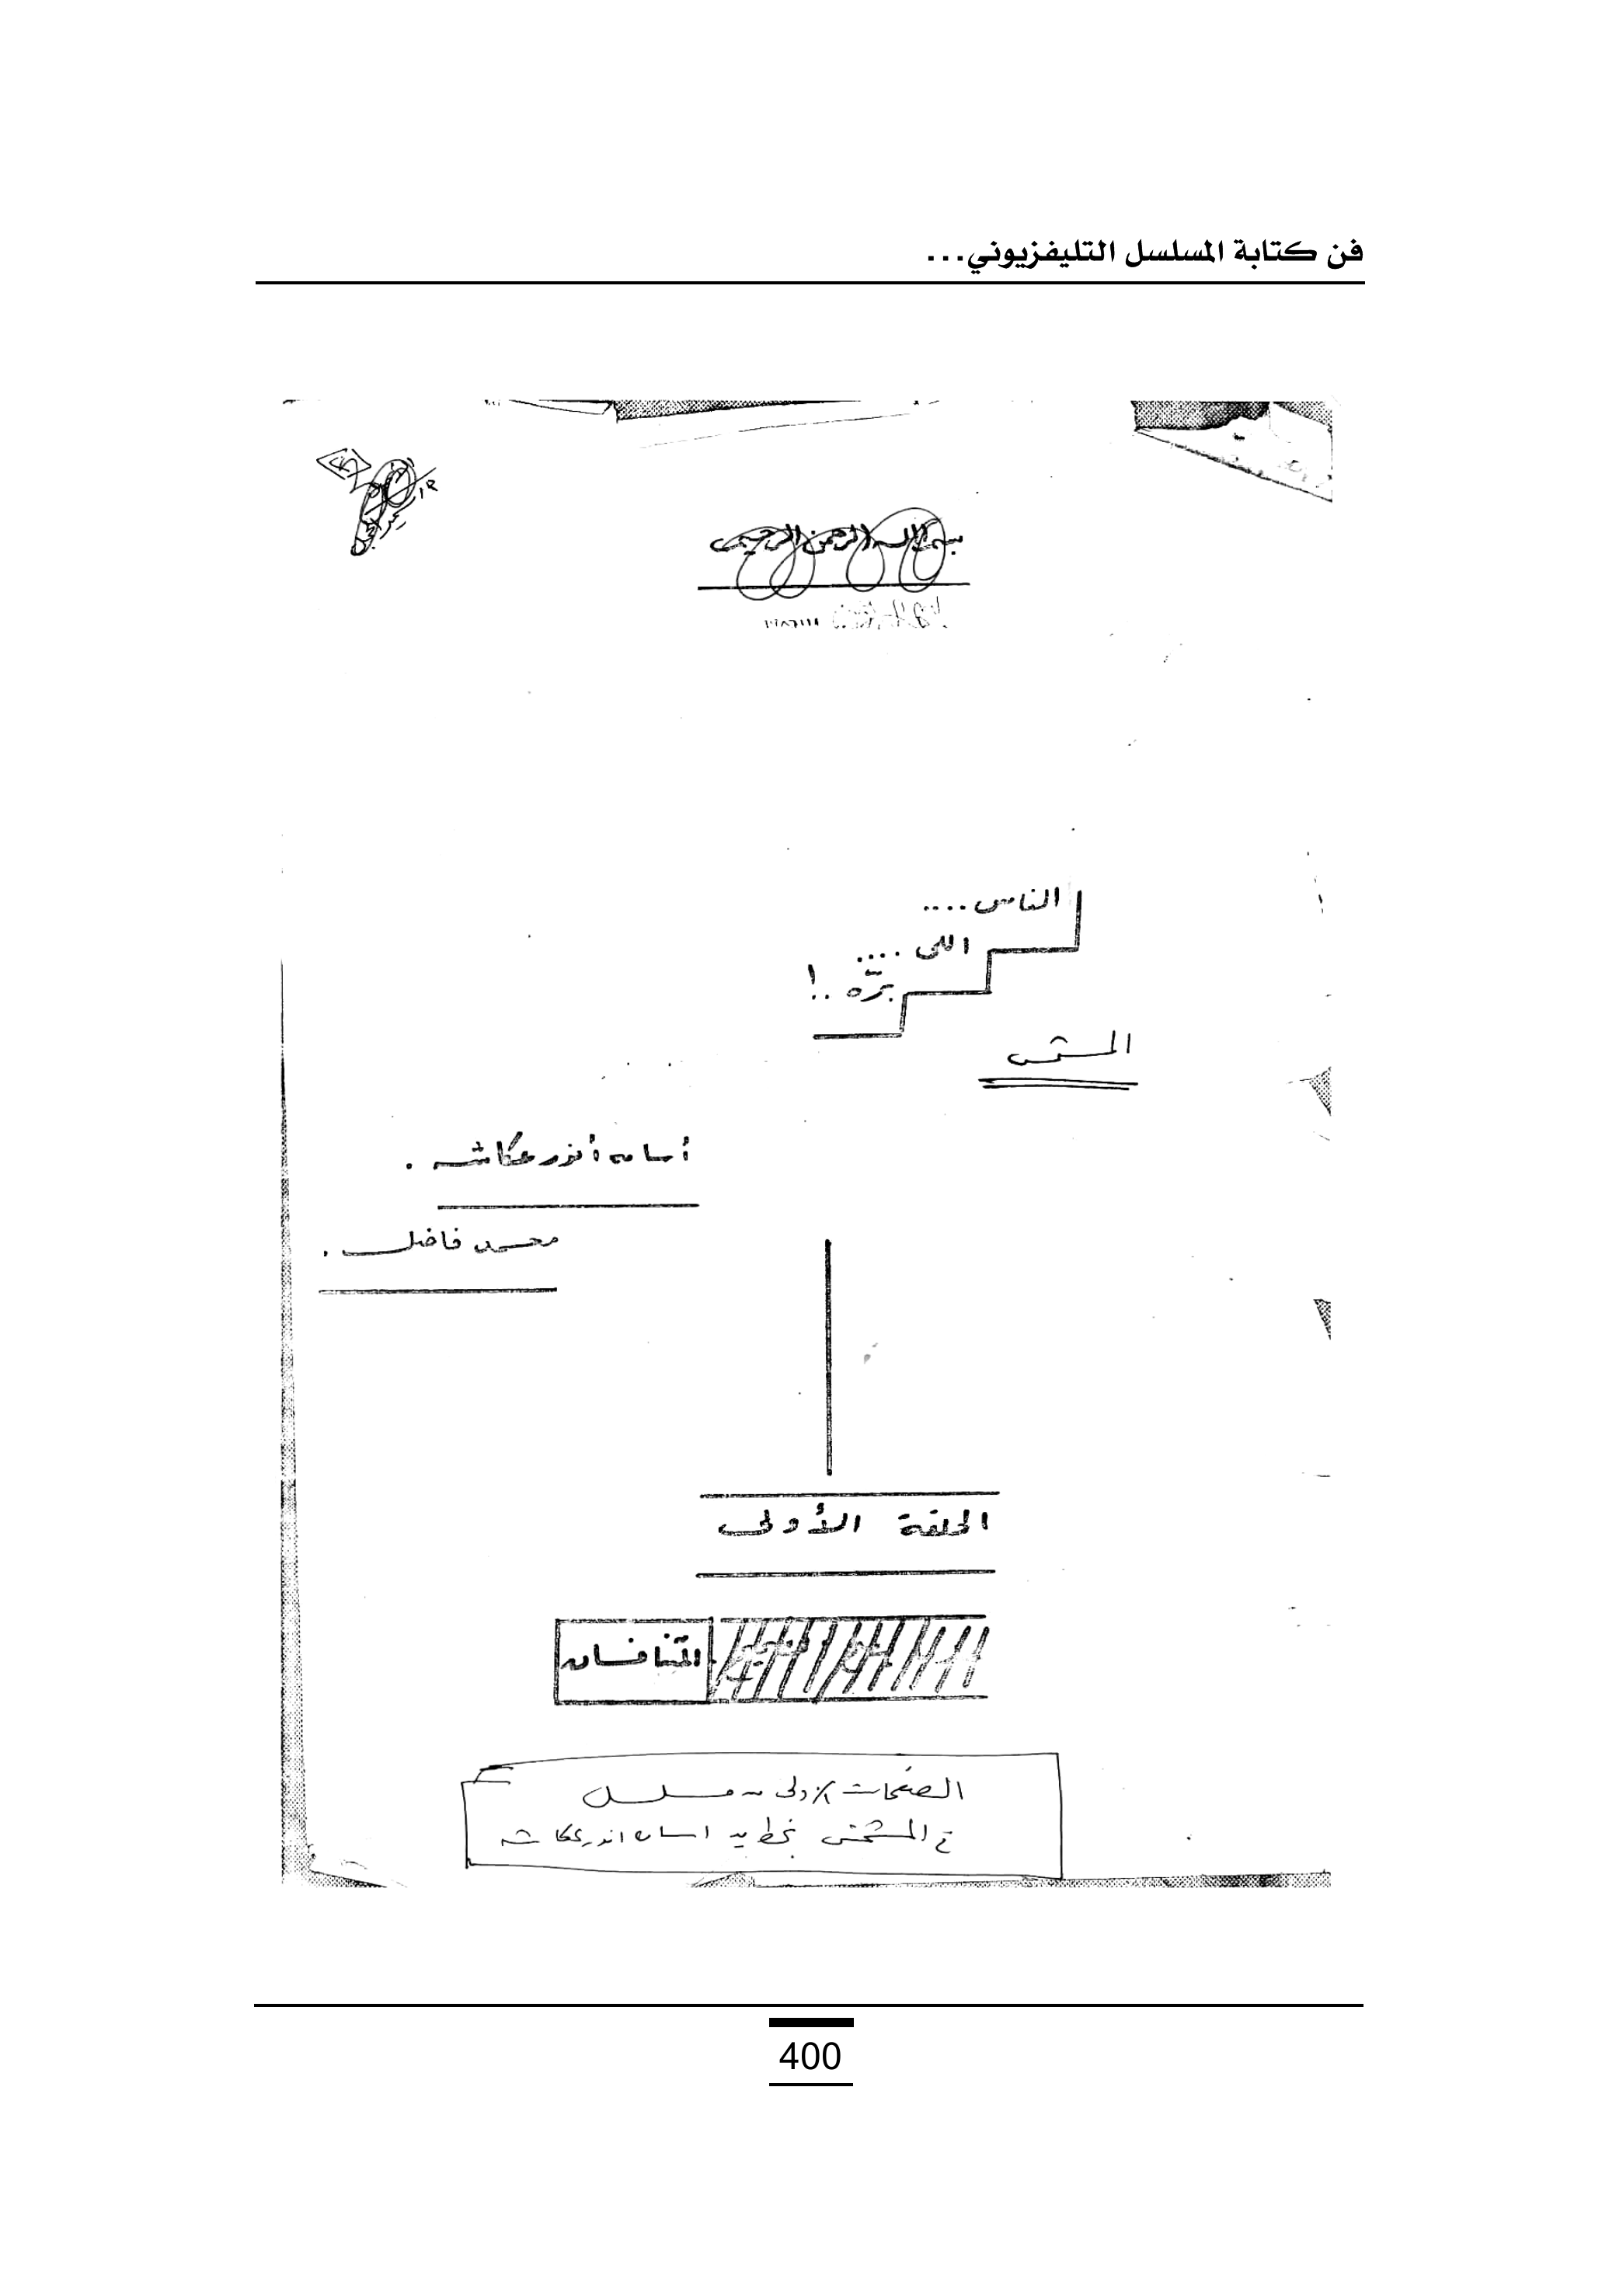 فن كتابة المسلسل التليفزيوني...
بسم الله الرحمن الرحيم
الناس ....
اللى ....
برّه ..!
أسامه أنور عكاشه .
محمد فاضل .
الحلقة الأولى
المتنافسان
الصفحات الأولى من مسلسل
بخط يد اسامه انور عكاشه
400